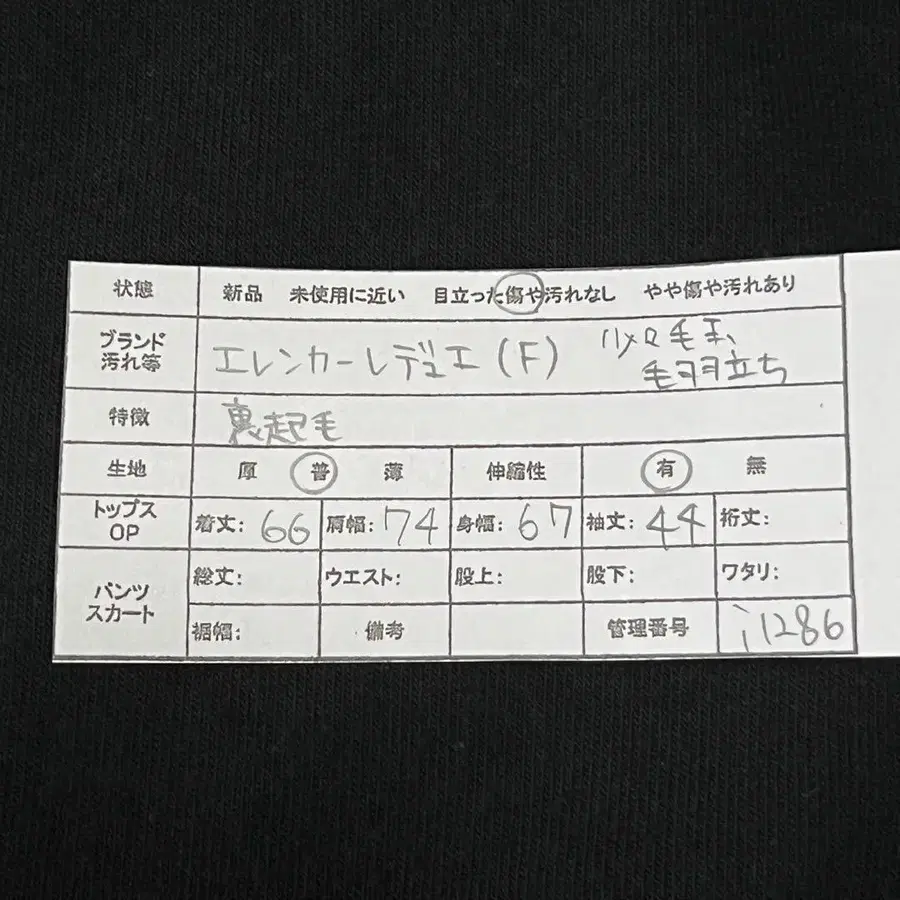 状態 新品 未使用に近い 目立った傷や汚れなし やや傷や汚れあり
ブランド
汚れ等 エレンカーレデュエ(F) 小メロ毛玉、
毛羽立ち
特徴 裏起毛
生地 厚 普 薄 伸縮性 有 無
トップス
OP 着丈: 66 肩幅: 74 身幅: 67 袖丈: 44 裄丈:
パンツ
スカート 総丈: ウエスト: 股上: 股下: ワタリ:
裾幅: 備考 管理番号 i1286